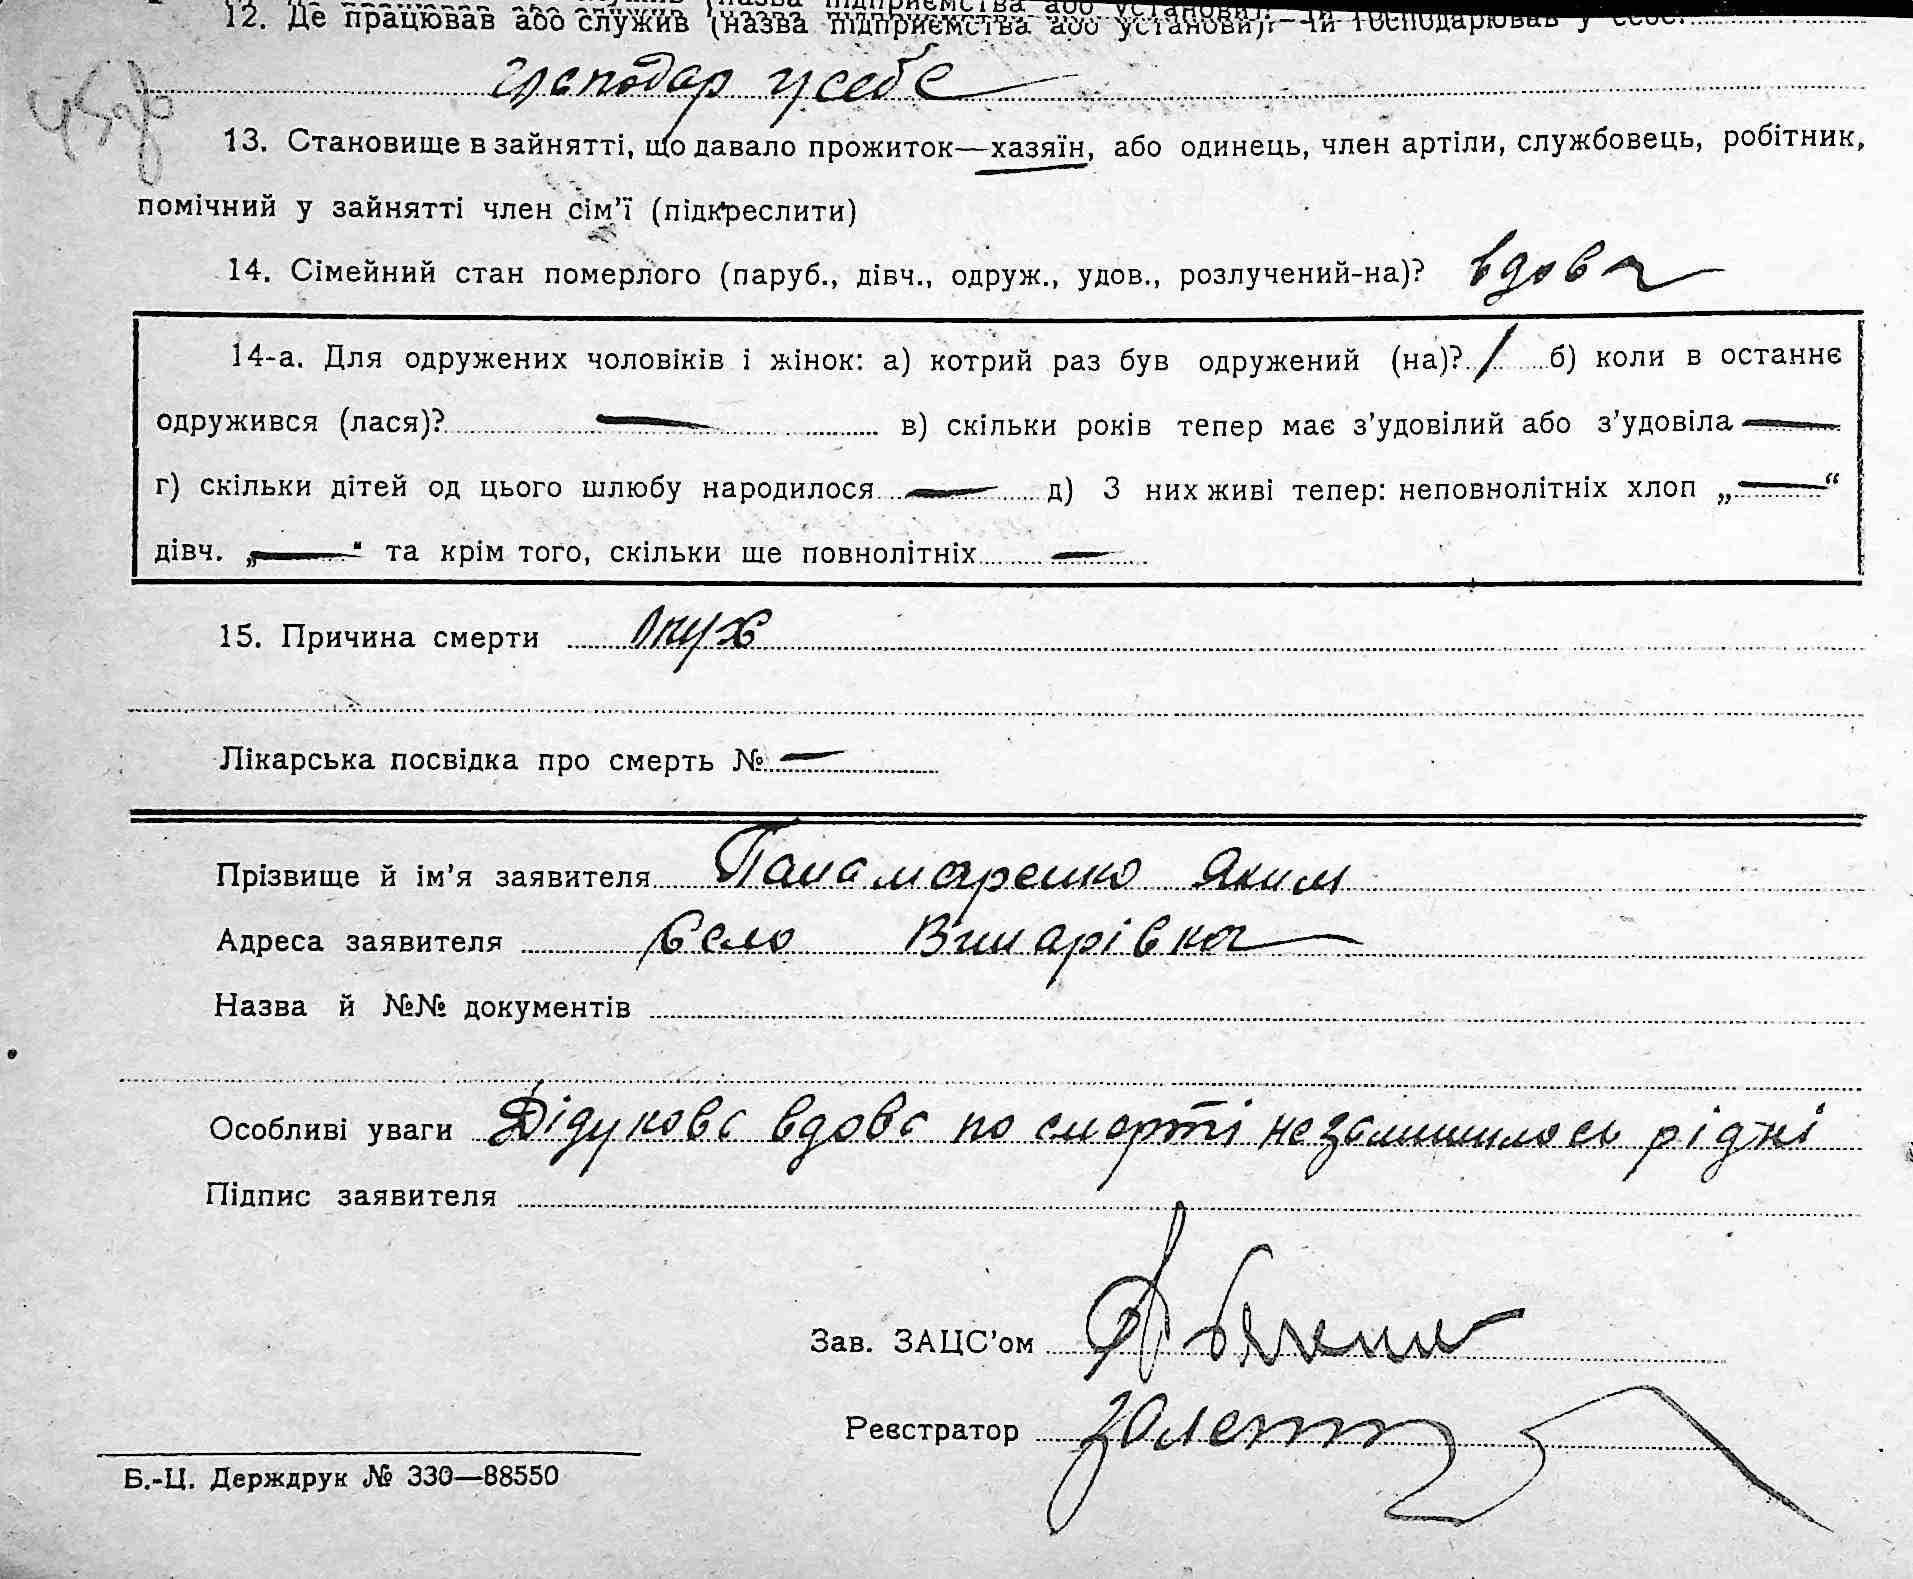 12. Де працював або служив (назва підприємства або установи)?—Чи господарював у себе?
господар у себе
13. Становище в зайнятті, що давало прожиток—хазяїн, або одинець, член артіли, службовець, робітник,
помічний у зайнятті член сім’ї (підкреслити)
14. Сімейний стан померлого (паруб., дівч., одруж., удов., розлучений-на)? вдова
14-а. Для одружених чоловіків і жінок: а) котрий раз був одружений (на)? / б) коли в останнє
одружився (лася)? — в) скільки років тепер має з’удовілий або з’удовіла —
г) скільки дітей од цього шлюбу народилося — д) З них живі тепер: неповнолітніх хлоп „—“
дівч. „—“ та крім того, скільки ще повнолітніх —
15. Причина смерти опух
Лікарська посвідка про смерть № —
Прізвище й ім’я заявителя Панамаренко Яким
Адреса заявителя Село Винарівка
Назва й №№ документів
Особливі уваги Дідукова вдова по смерті незалишилось рідні
Підпис заявителя
Зав. ЗАЦС’ом
Реєстратор
Б.-Ц. Держдрук № 330—88550